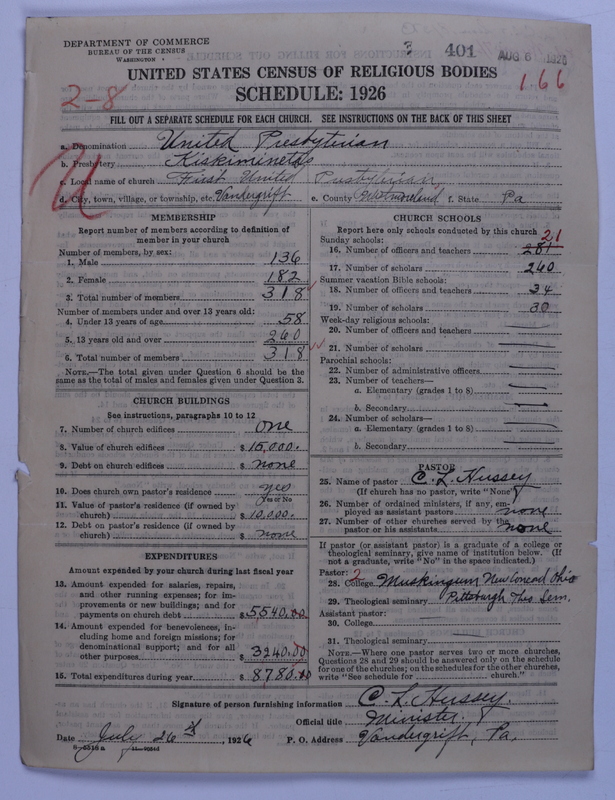 DEPARTMENT OF COMMERCE
BUREAU OF THE CENSUS
WASHINGTON
3 401 AUG 6 1926
166
UNITED STATES CENSUS OF RELIGIOUS BODIES
2-8
SCHEDULE: 1926
FILL OUT A SEPARATE SCHEDULE FOR EACH CHURCH. SEE INSTRUCTIONS ON THE BACK OF THIS SHEET
a. Denomination United Presbyterian
b. Presbytery Kiskiminetas
c. Local name of church First United Presbyterian
d. City, town, village, or township, etc. Vandergrift e. County Westmoreland f. State Pa
MEMBERSHIP
Report number of members according to definition of
member in your church
Number of members, by sex:
1. Male 136
2. Female 182
3. Total number of members 318
Number of members under and over 13 years old:
4. Under 13 years of age 58
5. 13 years old and over 260
6. Total number of members 318
NOTE.—The total given under Question 6 should be the
same as the total of males and females given under Question 3.
CHURCH BUILDINGS
See instructions, paragraphs 10 to 12
7. Number of church edifices one
8. Value of church edifices $ 15,000.
9. Debt on church edifices $ none
10. Does church own pastor's residence yes
(Yes or No)
11. Value of pastor's residence (if owned by
church) $ 10,000.
12. Debt on pastor's residence (if owned by
church) $ none
EXPENDITURES
Amount expended by your church during last fiscal year
13. Amount expended for salaries, repairs,
and other running expenses; for im-
provements or new buildings; and for
payments on church debt $ 5540.00
14. Amount expended for benevolences, in-
cluding home and foreign missions; for
denominational support; and for all
other purposes $ 3240.00
15. Total expenditures during year $ 8780.00
CHURCH SCHOOLS
Report here only schools conducted by this church
Sunday schools: 21
16. Number of officers and teachers 281
17. Number of scholars 260
Summer vacation Bible schools:
18. Number of officers and teachers 34
19. Number of scholars 30
Week-day religious schools:
20. Number of officers and teachers
21. Number of scholars
Parochial schools:
22. Number of administrative officers
23. Number of teachers—
a. Elementary (grades 1 to 8)
b. Secondary
24. Number of scholars—
a. Elementary (grades 1 to 8)
b. Secondary
PASTOR
25. Name of pastor C. L. Hussey
(If church has no pastor, write "None")
26. Number of ordained ministers, if any, em-
ployed as assistant pastors none
27. Number of other churches served by the
pastor or his assistants none
If pastor (or assistant pastor) is a graduate of a college or
theological seminary, give name of institution below. (If
not a graduate, write "No" in the space indicated.)
Pastor: 2
28. College Muskingum New Concord Ohio
29. Theological seminary Pittsburgh Theo Sem.
Assistant pastor:
30. College
31. Theological seminary
NOTE.—Where one pastor serves two or more churches,
Questions 28 and 29 should be answered only on the schedule
for one of the churches; on the schedules for the other churches,
write "See schedule for church."
Signature of person furnishing information C. L. Hussey
Official title Minister
Date July 26, 1926 P. O. Address Vandergrift, Pa.
8-5516a